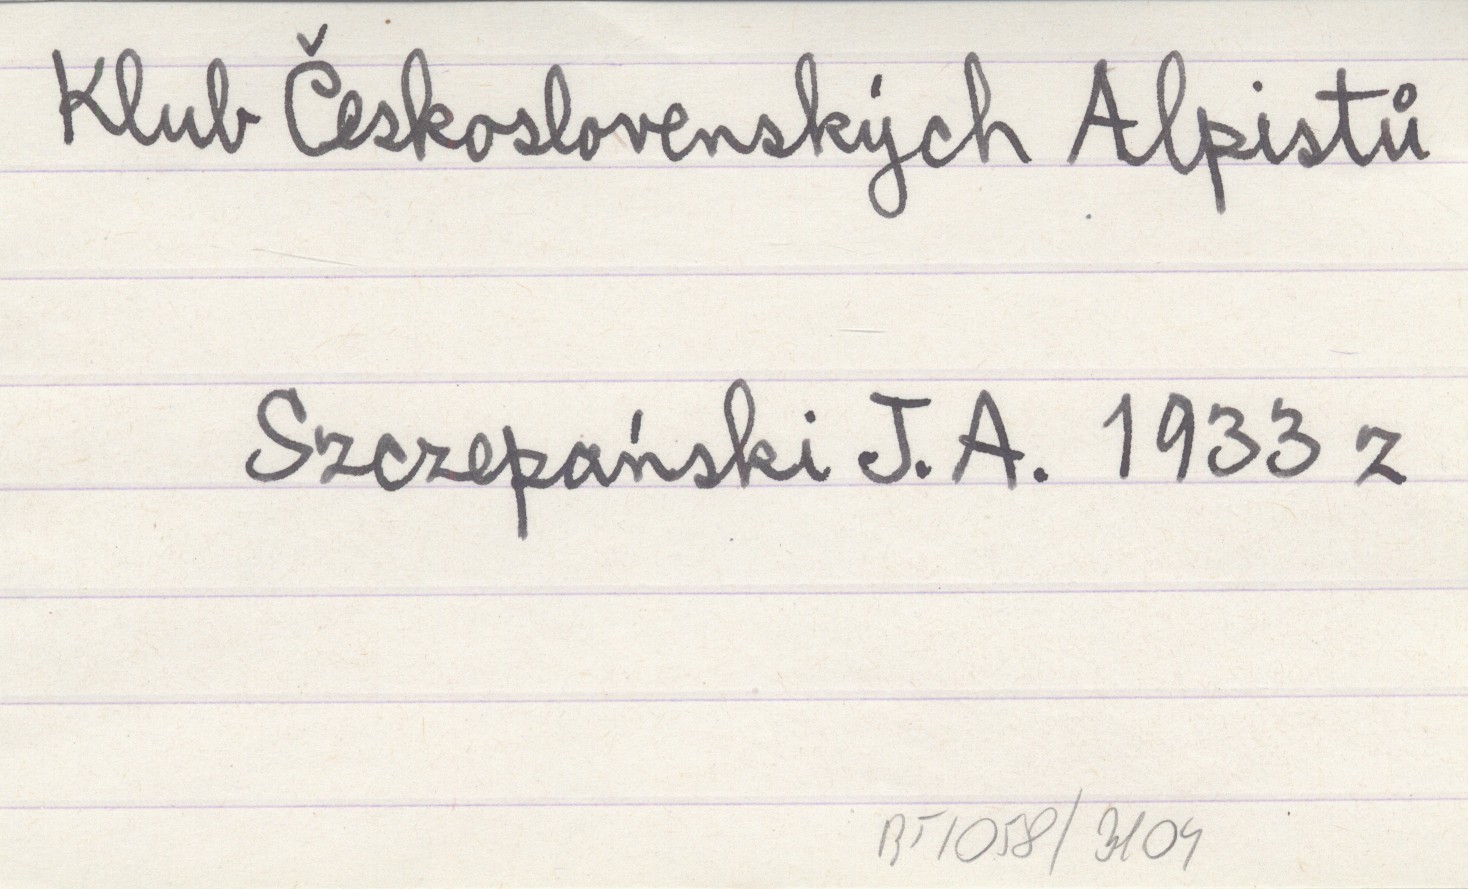 Klub Československých Alpistů
Szczepański J. A. 1933 z
BT1058/3104